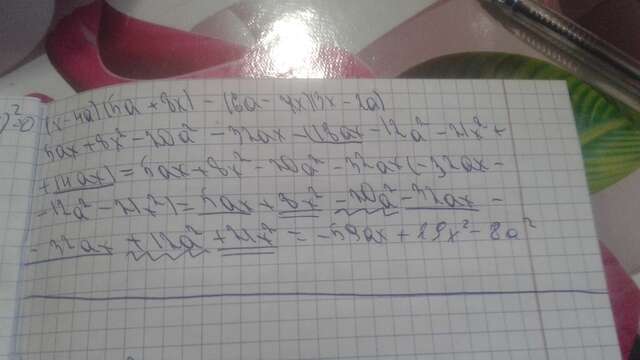 (x-4a)(5a+8x)-(6a-7x)(3x-2a)
5ax+8x²-20a²-32ax-(18ax-12a²-21x²+
+14ax)=5ax+8x²-20a²-32ax(-32ax-
-12a²-21x²)=5ax+8x²-20a²-32ax-
-32ax+12a²+21x²=-59ax+29x²-8a²